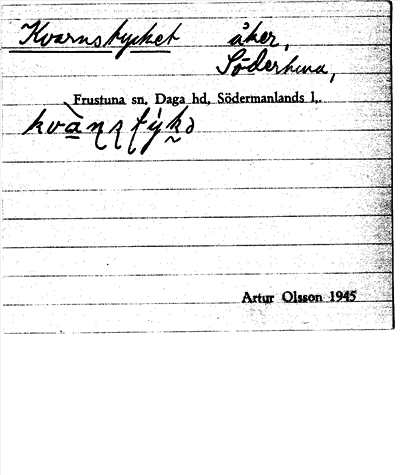 Kvarnstycket åker,
Södertuna,
Frustuna sn, Daga hd, Södermanlands l.
Artur Olsson 1945